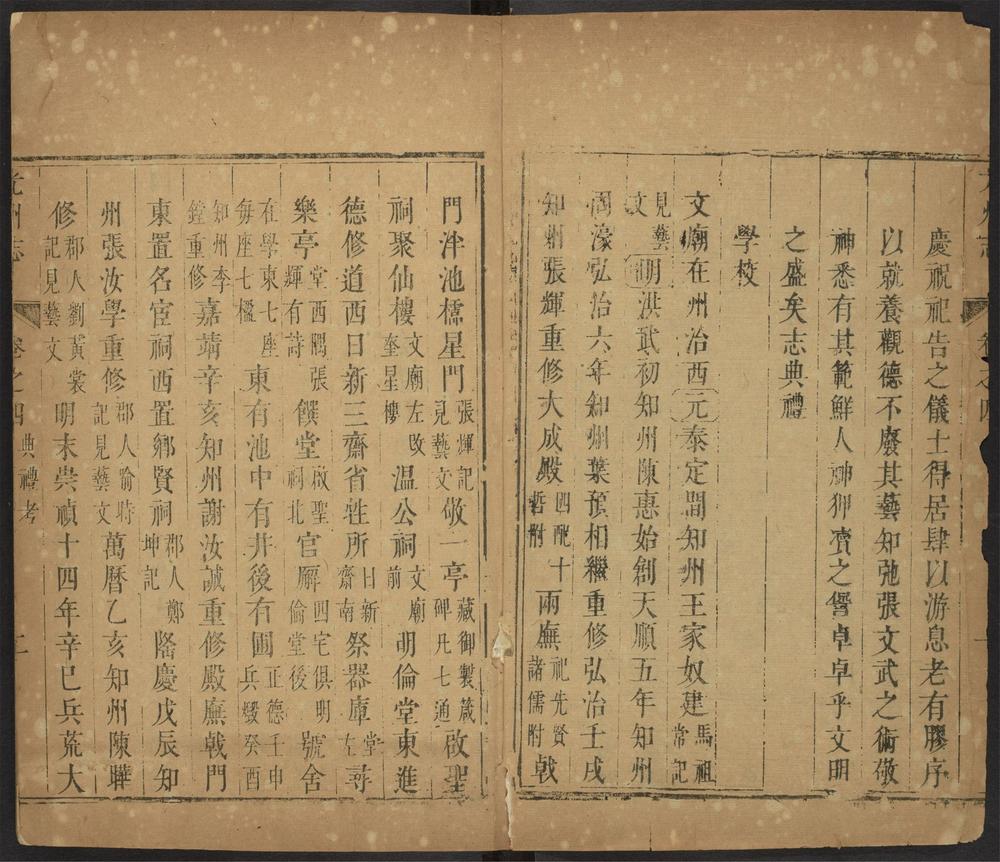 慶祝祀告之儀士得居肆以游息老有膠序
以就養觀德不廢其藝知弛張文武之術敬
神悉有其範鮮人神狎瀆之響卓卓乎文明
之盛矣志典禮
學校
文廟在州治西元泰定間知州王家奴建馬祖常記
見藝文明洪武初知州陳惠始創天順五年知州
閻濠弘治六年知州葉預相繼重修弘治壬戌
知州張輝重修大成殿四配十哲附兩廡祀先賢諸儒附戟
門泮池櫺星門張輝記見藝文敬一亭藏御製箴碑凡七通啟聖
祠聚仙樓文廟左改奎星樓温公祠文廟前明倫堂東進
德修道西日新三齋省牲所日新齋南祭器庫堂左尋
樂亭堂西隅張輝有詩饌堂啟聖祠北官廨四宅俱明倫堂後號舍
在學東七座每座七楹東有池中有井後有圃正德壬申兵燬癸酉
知州李鏜重修嘉靖辛亥知州謝汝誠重修殿廡戟門
東置名宦祠西置鄉賢祠郡人鄭坤記隆慶戊辰知
州張汝學重修郡人喻時記見藝文萬曆乙亥知州陳曄
修郡人劉黃裳記見藝文明末崇禎十四年辛巳兵荒大
光州志 卷之四 典禮考 二